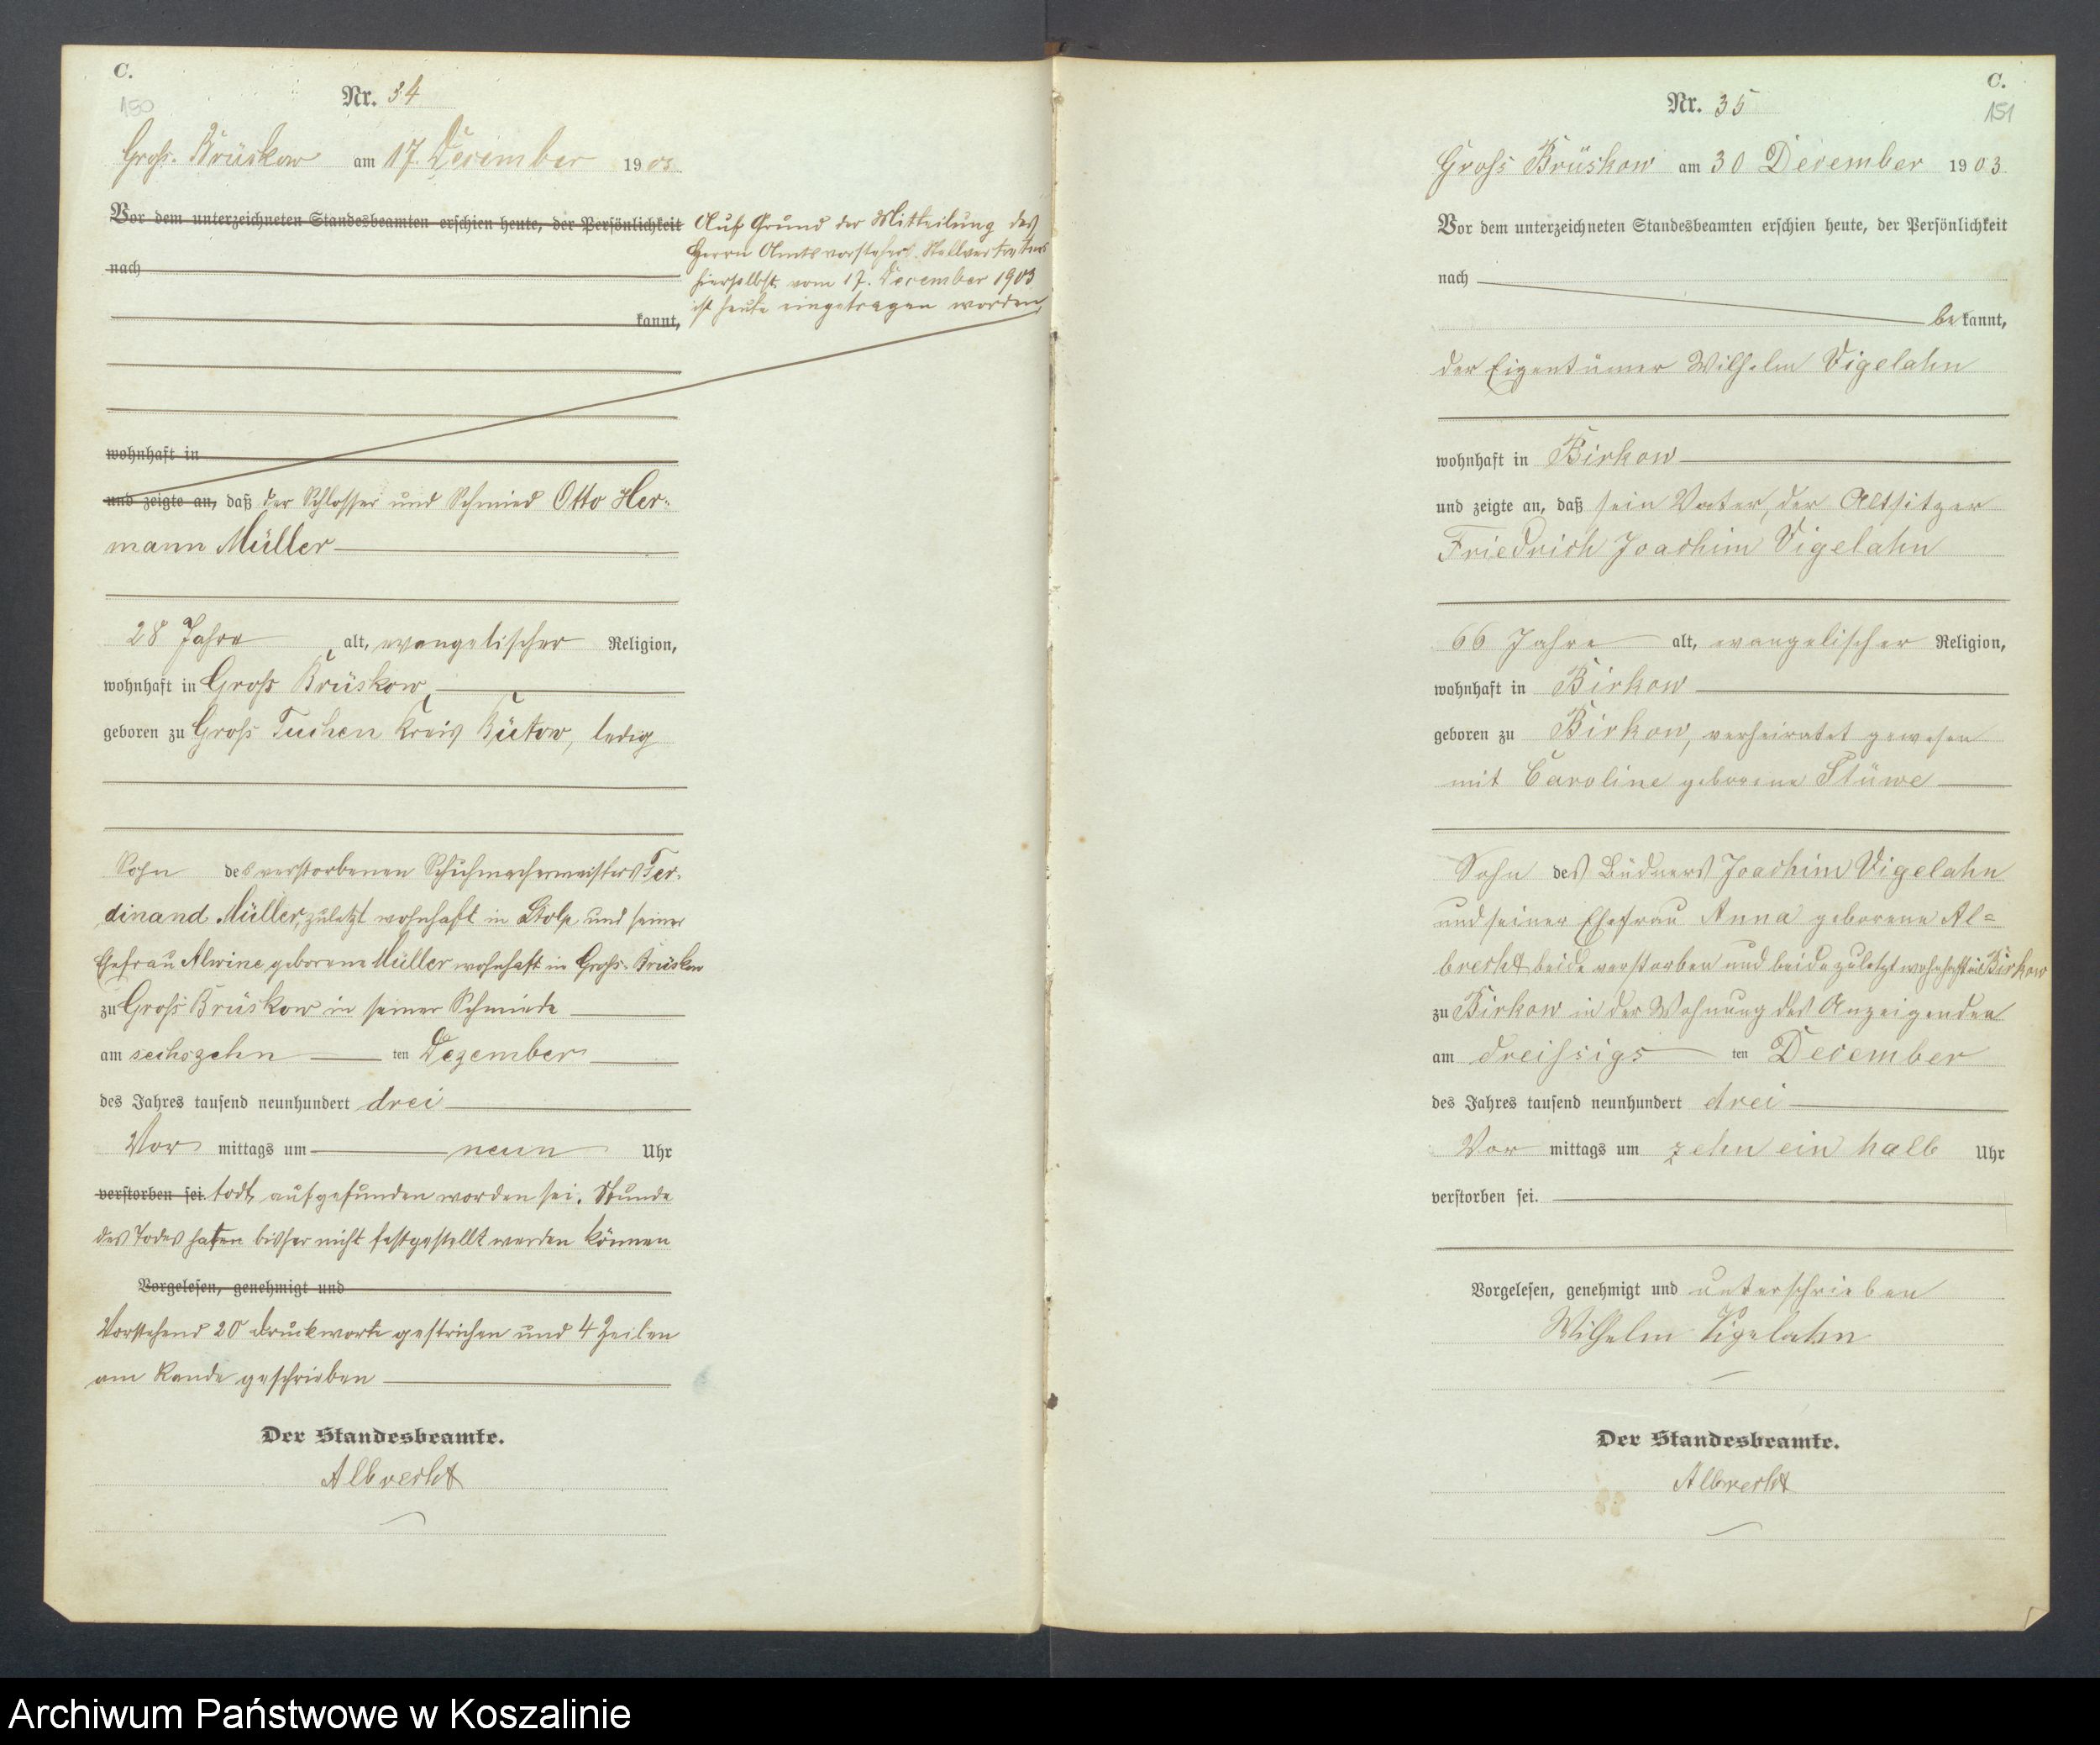 C.
150
Nr. 34
Groß-Brüskow am 17. December 1903
Vor dem unterzeichneten Standesbeamten erschien heute, der Persönlichkeit
nach
kannt,
Auf Grund der Mitteilung des
Herrn Amtsvorsteher-Stellvertreters
hierselbst vom 17. December 1903
ist heute eingetragen worden,
wohnhaft in
und zeigte an, daß der Schlosser und Schmied Otto Her-
mann Müller
28 Jahre alt, evangelischer Religion,
wohnhaft in Groß Brüskow,
geboren zu Groß Tuchen Kreis Bütow, ledig
Sohn des verstorbenen Schuhmachermeisters Fer-
dinand Müller, zuletzt wohnhaft in Stolp und seiner
Ehefrau Alwine geborene Müller wohnhaft in Groß-Brüskow
zu Groß Brüskow in seiner Schmiede
am sechszehn ten Dezember
des Jahres tausend neunhundert drei
Vor mittags um neun Uhr
verstorben sei. todt aufgefunden worden sei. Stunde
des Todes haben bisher nicht festgestellt werden können
Vorgelesen, genehmigt und
Vorstehend 20 Druckworte gestrichen und 4 Zeilen
am Rande geschrieben
Der Standesbeamte.
Albrecht
C.
151
Nr. 35
Gross Brüskow am 30 December 1903
Vor dem unterzeichneten Standesbeamten erschien heute, der Persönlichkeit
nach
be kannt,
der Eigentümer Wilhelm Vigelahn
wohnhaft in Birkow
und zeigte an, daß sein Vater, der Altsitzer
Friedrich Joachim Vigelahn
66 Jahre alt, evangelischer Religion,
wohnhaft in Birkow
geboren zu Birkow, verheiratet gewesen
mit Caroline geborene Stüwe
Sohn des Büdners Joachim Vigelahn
und seiner Ehefrau Anna geborene Al=
brecht beide verstorben und beide zuletzt wohnhaft in Birkow
zu Birkow in der Wohnung des Anzeigenden
am dreissigs ten December
des Jahres tausend neunhundert drei
Vor mittags um zehn ein halb Uhr
verstorben sei.
Vorgelesen, genehmigt und unterschrieben
Wilhelm Vigelahn
Der Standesbeamte.
Albrecht
Archiwum Państwowe w Koszalinie